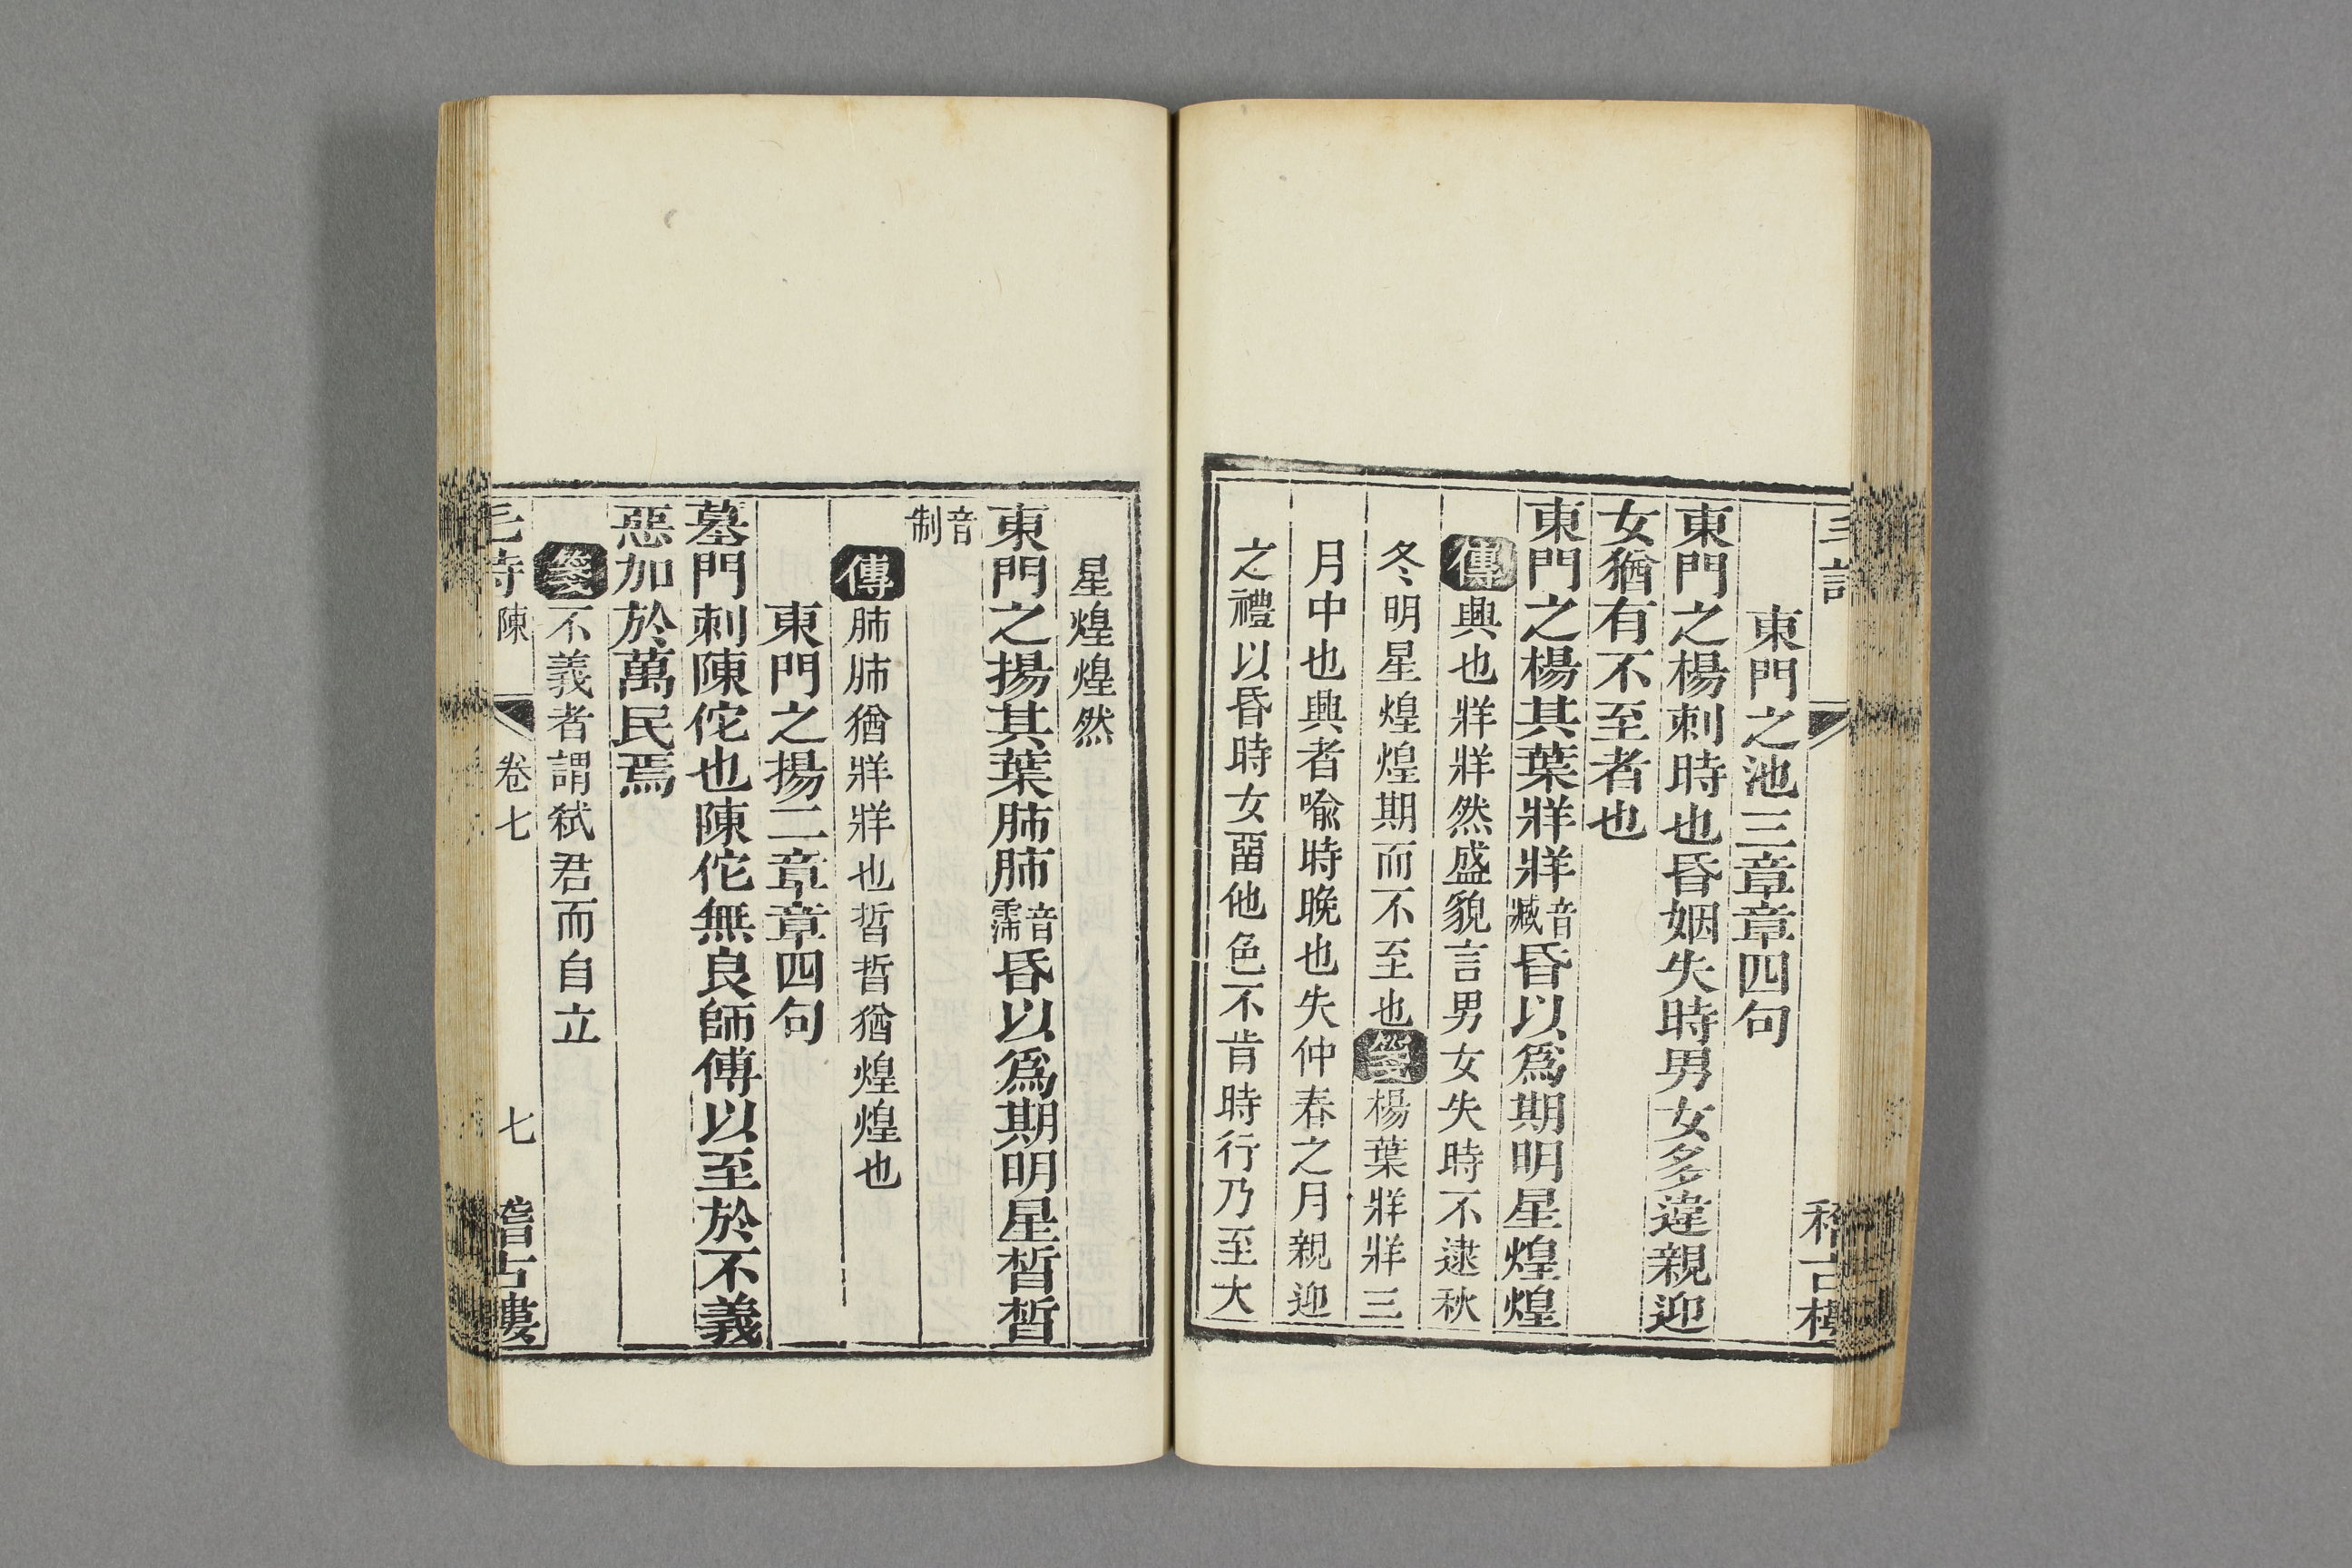 東門之池三章章四句
東門之楊刺時也昏姻失時男女多違親迎
女猶有不至者也
東門之楊其葉牂牂音臧昏以爲期明星煌煌
傳興也牂牂然盛貌言男女失時不逮秋
冬明星煌煌期而不至也箋楊葉牂牂三
月中也興者喻時晚也失仲春之月親迎
之禮以昏時女畱他色不肯時行乃至大
星煌煌然
東門之揚其葉肺肺音霈昏以爲期明星晢晢
音制
傳肺肺猶牂牂也晢晢猶煌煌也
東門之揚二章章四句
墓門刺陳佗也陳佗無良師傅以至於不義
惡加於萬民焉
箋不義者謂弒君而自立
毛詩 陳 卷七 七 稽古樓